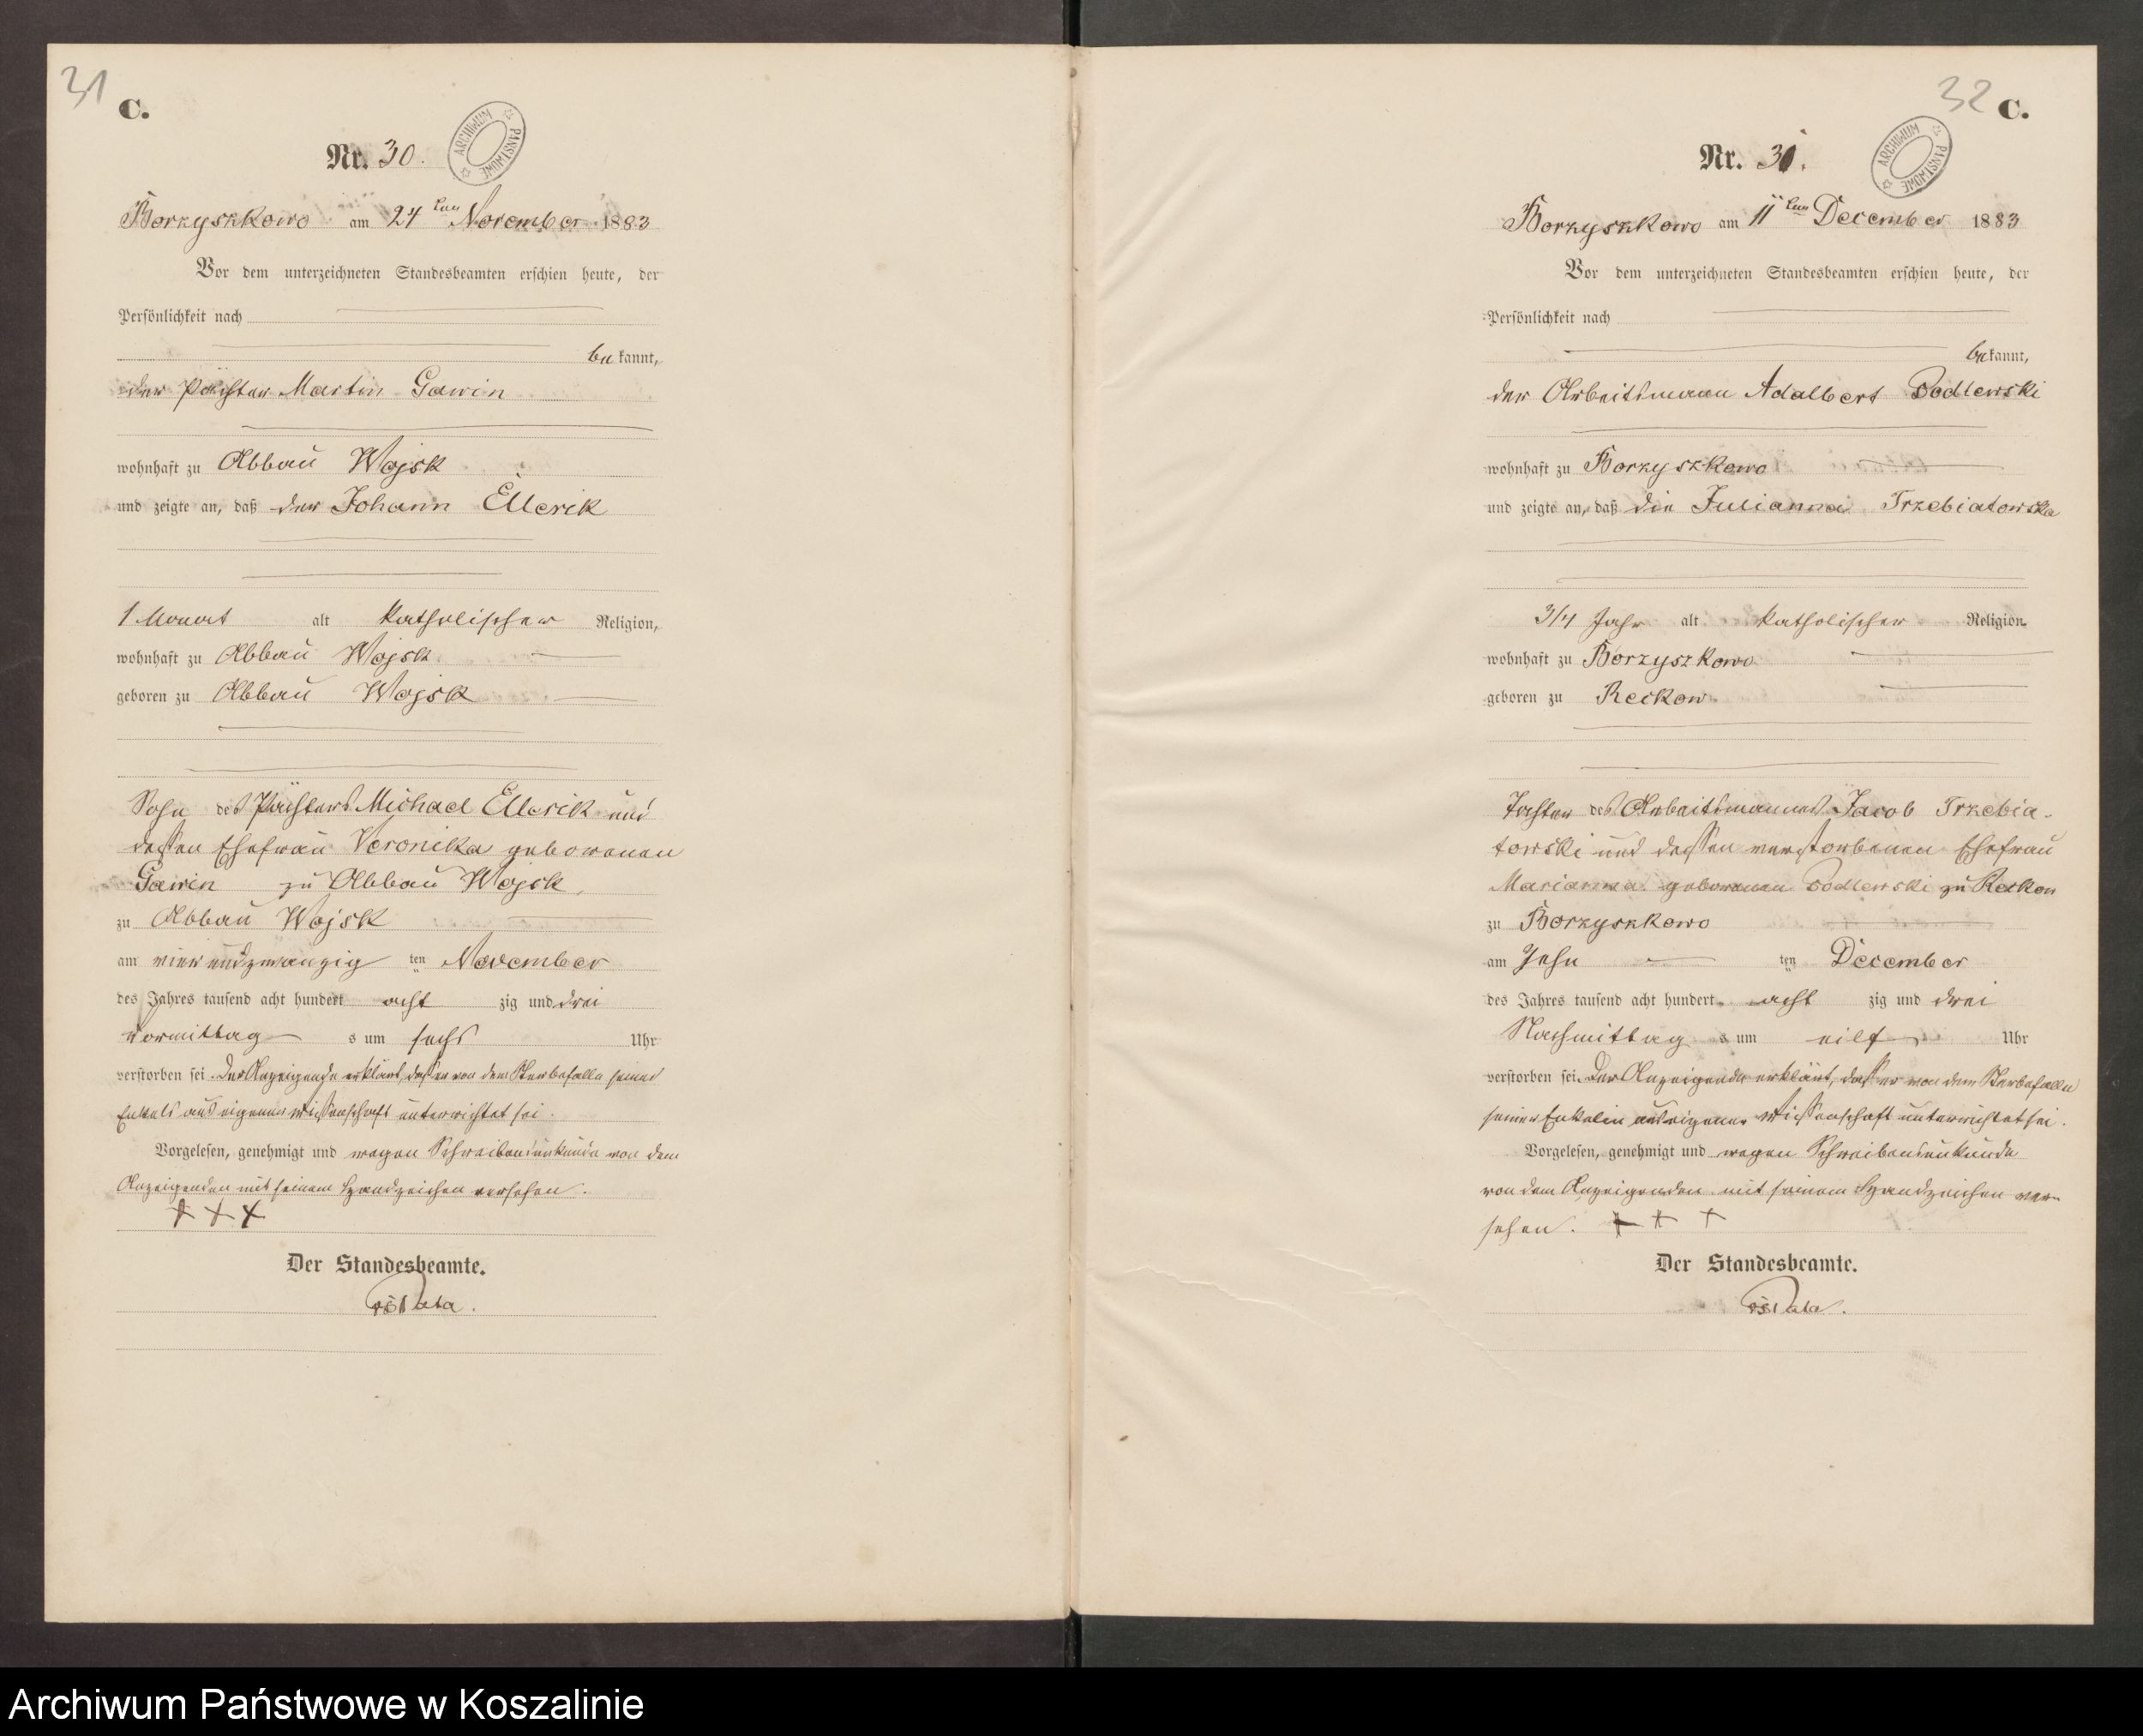 31
C.
Nr. 30.
ARCHIWUM PAŃSTWOWE
Borzyszkowo am 24ten November 1883
Vor dem unterzeichneten Standesbeamten erschien heute, der
Persönlichkeit nach
bekannt,
der Pächter Martin Gawin
wohnhaft zu Abbau Wojsk
und zeigte an, daß der Johann Ellerik
1 Monat alt katholischer Religion,
wohnhaft zu Abbau Wojsk
geboren zu Abbau Wojsk
Sohn des Pächters Michael Ellerik und
dessen Ehefrau Veronika geborenen
Gawin zu Abbau Wojsk
zu Abbau Wojsk
am vierundzwanzig ten November
des Jahres tausend acht hundert acht zig und drei
Vormittag s um sechs Uhr
verstorben sei. Der Anzeigende erklärt, dass er von dem Sterbefalle seines
Enkels aus eigener Wissenschaft unterrichtet sei.
Vorgelesen, genehmigt und wegen Schreibensunkunde von dem
Anzeigenden mit seinem Handzeichen versehen.
+ + +
Der Standesbeamte.
32
C.
Nr. 31.
ARCHIWUM PAŃSTWOWE
Borzyszkowo am 11ten December 1883
Vor dem unterzeichneten Standesbeamten erschien heute, der
Persönlichkeit nach
bekannt,
der Arbeitsmann Adalbert Podlewski
wohnhaft zu Borzyszkowo
und zeigte an, daß die Julianna Trzebiatowska
3/4 Jahr alt katholischer Religion
wohnhaft zu Borzyszkowo
geboren zu Reckow
Tochter des Arbeitsmannes Jacob Trzebia-
towski und dessen verstorbenen Ehefrau
Marianna geborenen Podlewski zu Reckow
zu Borzyszkowo
am Zehn ten December
des Jahres tausend acht hundert acht zig und drei
Nachmittag s um eilf Uhr
verstorben sei. Der Anzeigende erklärt, dass er von dem Sterbefalle
seiner Enkelin aus eigener Wissenschaft unterrichtet sei.
Vorgelesen, genehmigt und wegen Schreibensunkunde
von dem Anzeigenden mit seinem Handzeichen ver-
sehen. + + +
Der Standesbeamte.
Archiwum Państwowe w Koszalinie